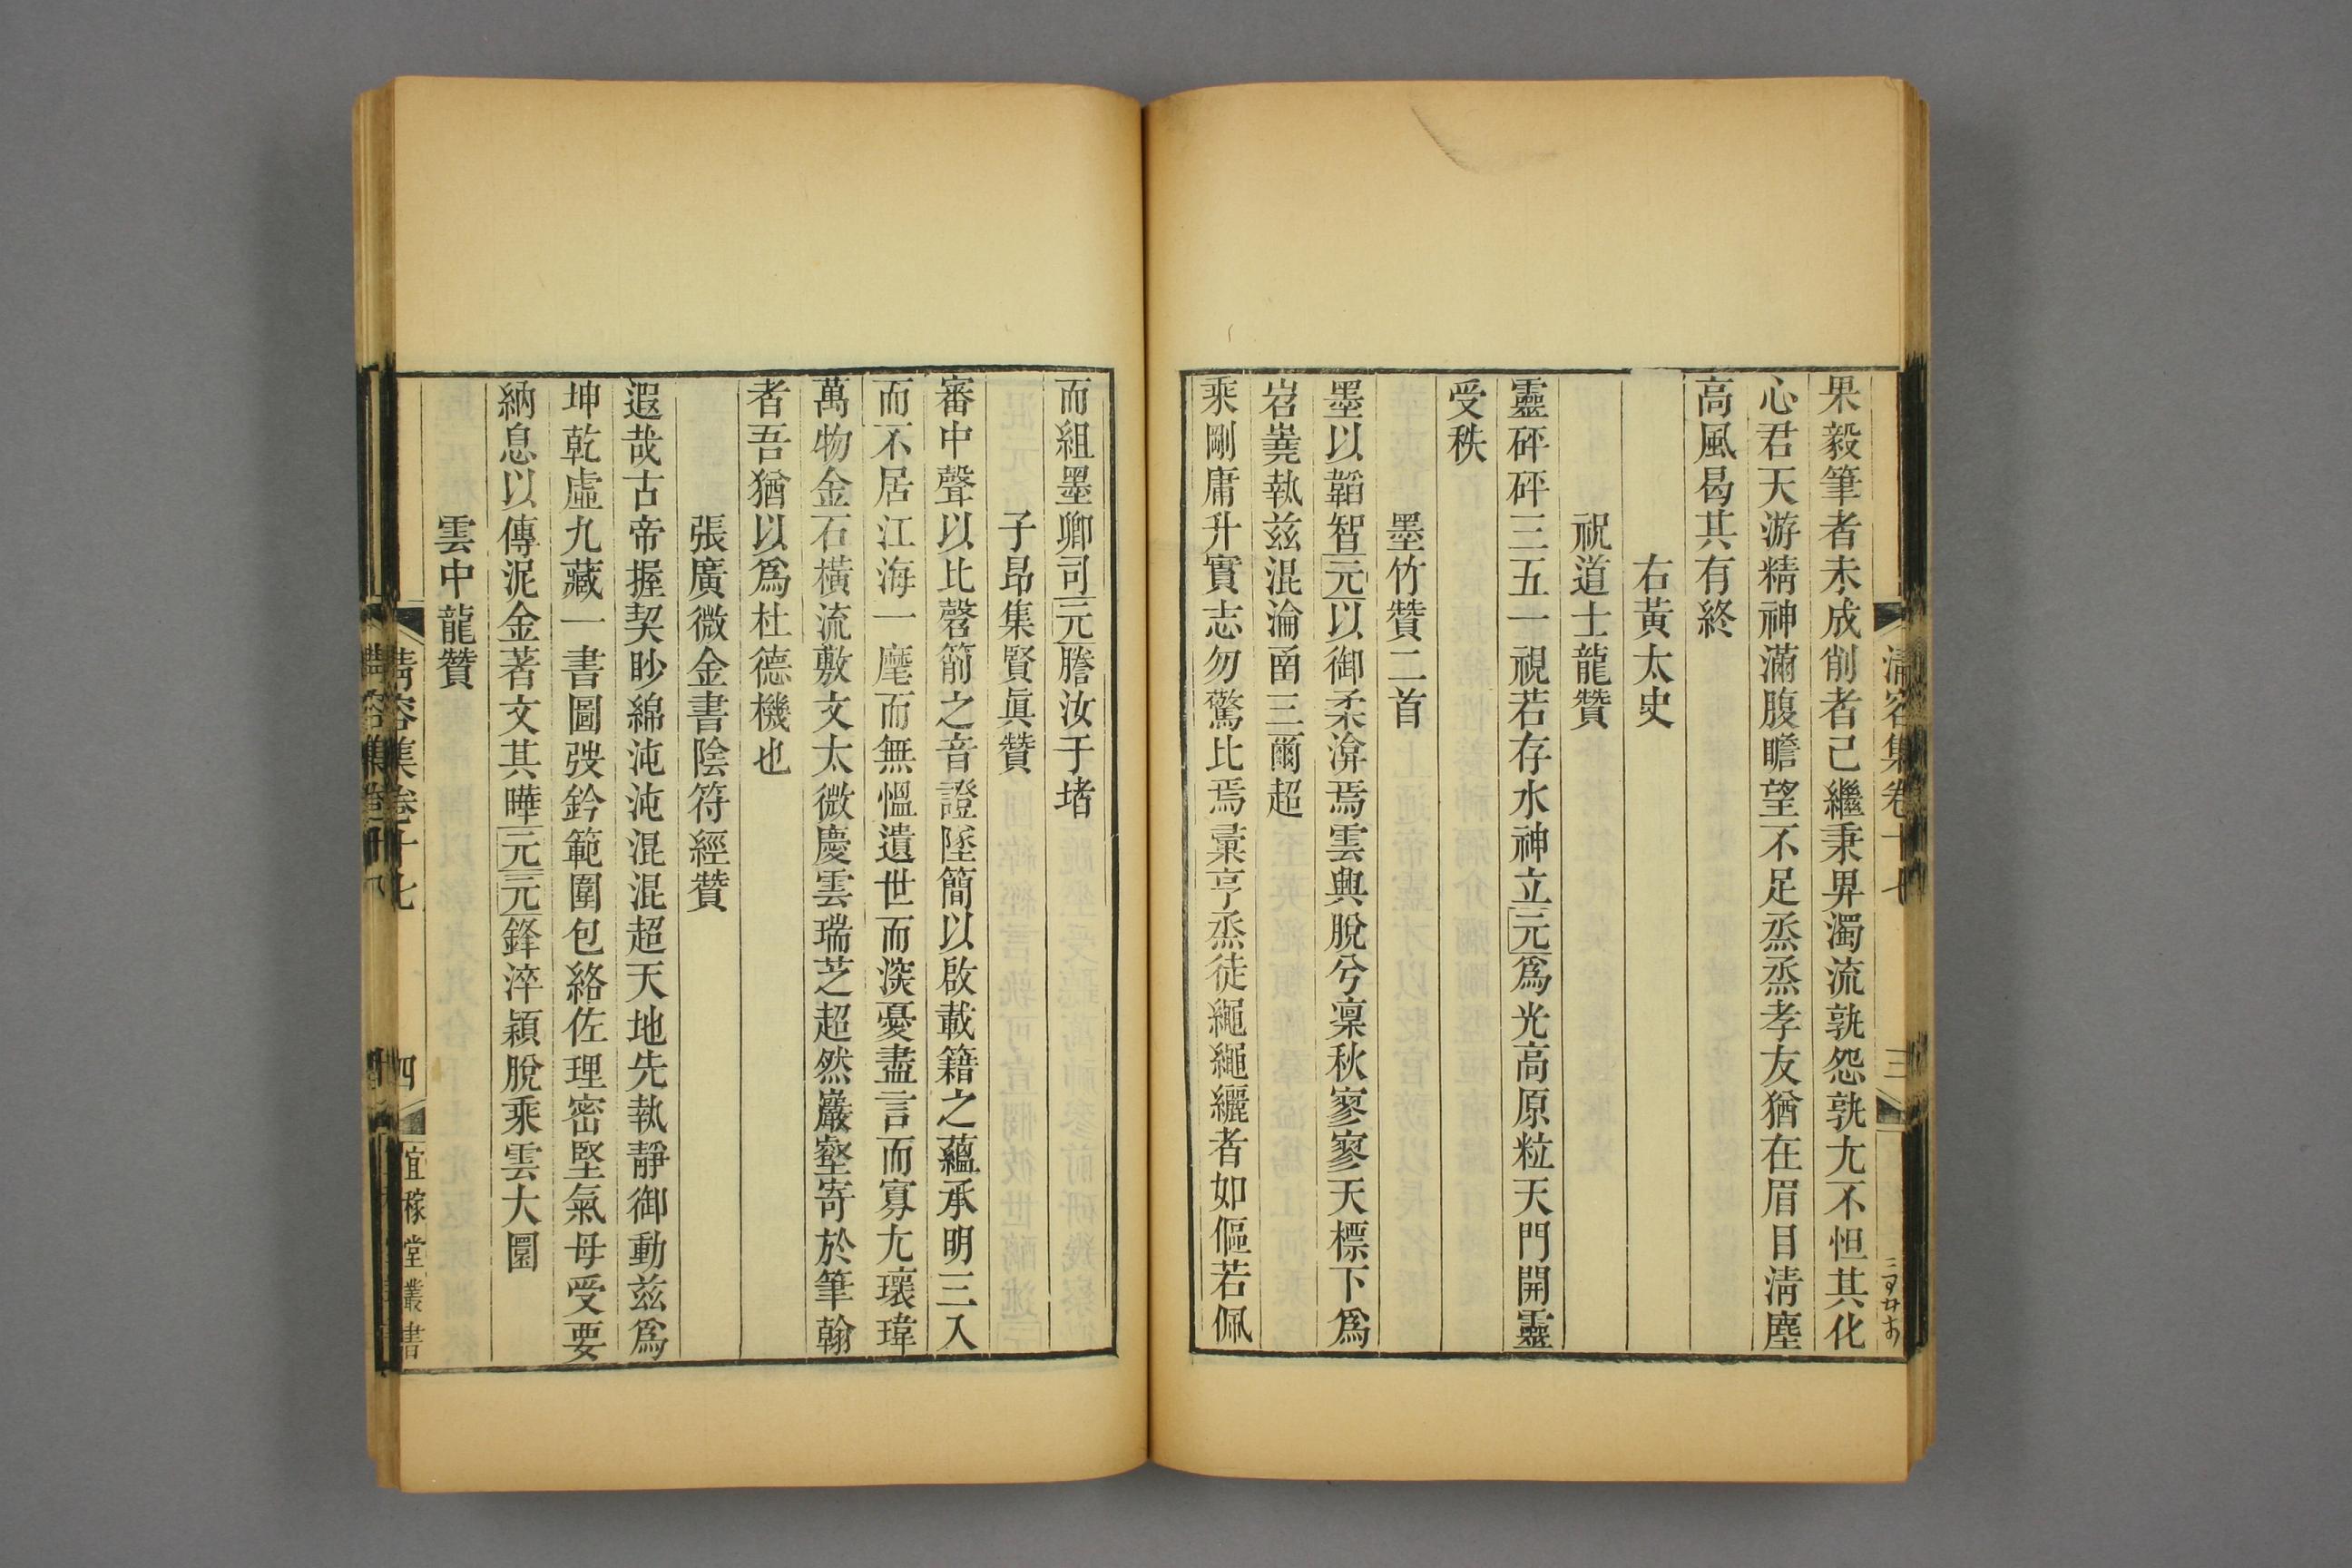 果毅筆者未成削者已繼秉畀濁流孰怨孰尤不怛其化
心君天游精神滿腹瞻望不足烝烝孝友猶在眉目淸塵
高風曷其有終
右黃太史
祝道士龍贊
靈砰砰三五一視若存水神立元爲光高原粒天門開靈
受秩
墨竹贊二首
墨以韜智元以御柔渰焉雲興脫兮凜秋寥寥天標下爲
岧嶤執兹混淪函三爾超
乘剛庸升實志勿驚比焉彙亨烝徒繩繩纚者如傴若佩
清容集卷十七
三
而組墨卿司元謄汝于堵
子昂集賢眞贊
審中聲以比磬箾之音證墜簡以啟載籍之蘊承明三入
而不居江海一麾而無慍遺世而深憂盡言而寡尤瓌瑋
萬物金石橫流敷文太微慶雲瑞芝超然巖壑寄於筆翰
者吾猶以爲杜德機也
張廣微金書陰符經贊
遐哉古帝握契眇綿沌沌混混超天地先執靜御動兹爲
坤乾虛九藏一書圖發鈐範圍包絡佐理密堅氣母受要
納息以傳泥金著文其曄元元鋒淬穎脫乘雲大圜
雲中龍贊
清容集卷十七
四
宜稼堂叢書